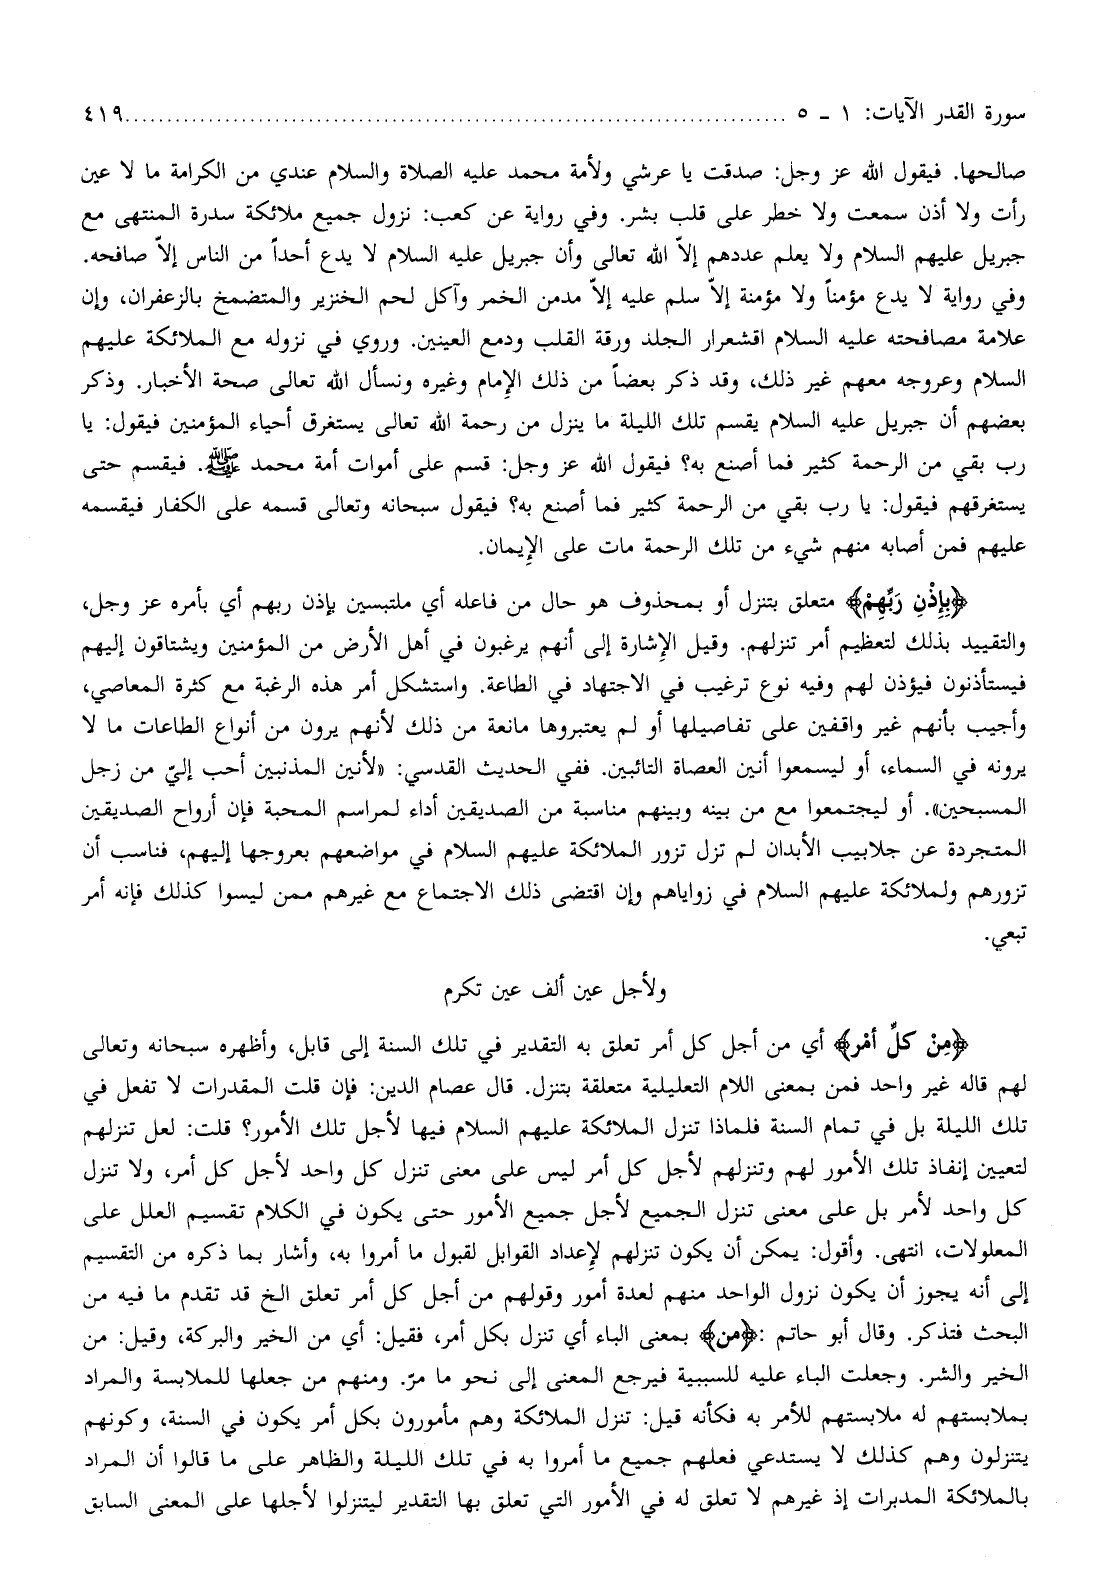 سورة القدر الآيات: ١ ـ ٥ ................................................................................ ٤١٩
صالحها. فيقول الله عز وجل: صدقت يا عرشي ولأمة محمد عليه الصلاة والسلام عندي من الكرامة ما لا عين
رأت ولا أذن سمعت ولا خطر على قلب بشر. وفي رواية عن كعب: نزول جميع ملائكة سدرة المنتهى مع
جبريل عليهم السلام ولا يعلم عددهم إلاّ الله تعالى وأن جبريل عليه السلام لا يدع أحداً من الناس إلاّ صافحه.
وفي رواية لا يدع مؤمناً ولا مؤمنة إلاّ سلم عليه إلاّ مدمن الخمر وآكل لحم الخنزير والمتضمخ بالزعفران، وإن
علامة مصافحته عليه السلام اقشعرار الجلد ورقة القلب ودمع العينين. وروي في نزوله مع الملائكة عليهم
السلام وعروجه معهم غير ذلك، وقد ذكر بعضاً من ذلك الإمام وغيره ونسأل الله تعالى صحة الأخبار. وذكر
بعضهم أن جبريل عليه السلام يقسم تلك الليلة ما ينزل من رحمة الله تعالى يستغرق أحياء المؤمنين فيقول: يا
رب بقي من الرحمة كثير فما أصنع به؟ فيقول الله عز وجل: قسم على أموات أمة محمد ﷺ. فيقسم حتى
يستغرقهم فيقول: يا رب بقي من الرحمة كثير فما أصنع به؟ فيقول سبحانه وتعالى قسمه على الكفار فيقسمه
عليهم فمن أصابه منهم شيء من تلك الرحمة مات على الإيمان.
﴿بِإِذْنِ رَبِّهِمْ﴾ متعلق بتنزل أو بمحذوف هو حال من فاعله أي ملتبسين بإذن ربهم أي بأمره عز وجل،
والتقييد بذلك لتعظيم أمر تنزلهم. وقيل الإشارة إلى أنهم يرغبون في أهل الأرض من المؤمنين ويشتاقون إليهم
فيستأذنون فيؤذن لهم وفيه نوع ترغيب في الاجتهاد في الطاعة. واستشكل أمر هذه الرغبة مع كثرة المعاصي،
وأجيب بأنهم غير واقفين على تفاصيلها أو لم يعتبروها مانعة من ذلك لأنهم يرون من أنواع الطاعات ما لا
يرونه في السماء، أو ليسمعوا أنين العصاة التائبين. ففي الحديث القدسي: «لأنين المذنبين أحب إليّ من زجل
المسبحين». أو ليجتمعوا مع من بينه وبينهم مناسبة من الصديقين أداء لمراسم المحبة فإن أرواح الصديقين
المتجردة عن جلابيب الأبدان لم تزل تزور الملائكة عليهم السلام في مواضعهم بعروجها إليهم، فناسب أن
تزورهم ولملائكة عليهم السلام في زواياهم وإن اقتضى ذلك الاجتماع مع غيرهم ممن ليسوا كذلك فإنه أمر
تبعي.
ولأجل عين ألف عين تكرم
﴿مِنْ كلِّ أمْر﴾ أي من أجل كل أمر تعلق به التقدير في تلك السنة إلى قابل، وأظهره سبحانه وتعالى
لهم قاله غير واحد فمن بمعنى اللام التعليلية متعلقة بتنزل. قال عصام الدين: فإن قلت المقدرات لا تفعل في
تلك الليلة بل في تمام السنة فلماذا تنزل الملائكة عليهم السلام فيها لأجل تلك الأمور؟ قلت: لعل تنزلهم
لتعيين إنفاذ تلك الأمور لهم وتنزلهم لأجل كل أمر ليس على معنى تنزل كل واحد لأجل كل أمر، ولا تنزل
كل واحد لأمر بل على معنى تنزل الجميع لأجل جميع الأمور حتى يكون في الكلام تقسيم العلل على
المعلولات، انتهى. وأقول: يمكن أن يكون تنزلهم لإعداد القوابل لقبول ما أمروا به، وأشار بما ذكره من التقسيم
إلى أنه يجوز أن يكون نزول الواحد منهم لعدة أمور وقولهم من أجل كل أمر تعلق الخ قد تقدم ما فيه من
البحث فتذكر. وقال أبو حاتم :﴿من﴾ بمعنى الباء أي تنزل بكل أمر، فقيل: أي من الخير والبركة، وقيل: من
الخير والشر. وجعلت الباء عليه للسببية فيرجع المعنى إلى نحو ما مرّ. ومنهم من جعلها للملابسة والمراد
بملابستهم له ملابستهم للأمر به فكأنه قيل: تنزل الملائكة وهم مأمورون بكل أمر يكون في السنة، وكونهم
يتنزلون وهم كذلك لا يستدعي فعلهم جميع ما أمروا به في تلك الليلة والظاهر على ما قالوا أن المراد
بالملائكة المدبرات إذ غيرهم لا تعلق له في الأمور التي تعلق بها التقدير ليتنزلوا لأجلها على المعنى السابق